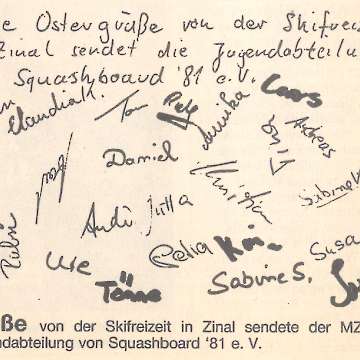 e Ostergrüße von der Skifreiz
Zinal sendet die Jugendabteilu
Squashboard '81 e. V.
Claudia K. Tom Annika Lars
Andreas
Daniel Christian
Sabine K
Andi Jutta
Uwe Petra Susa
Tönne Sabine S.
ße von der Skifreizeit in Zinal sendete der MZ
ndabteilung von Squashboard '81 e. V.